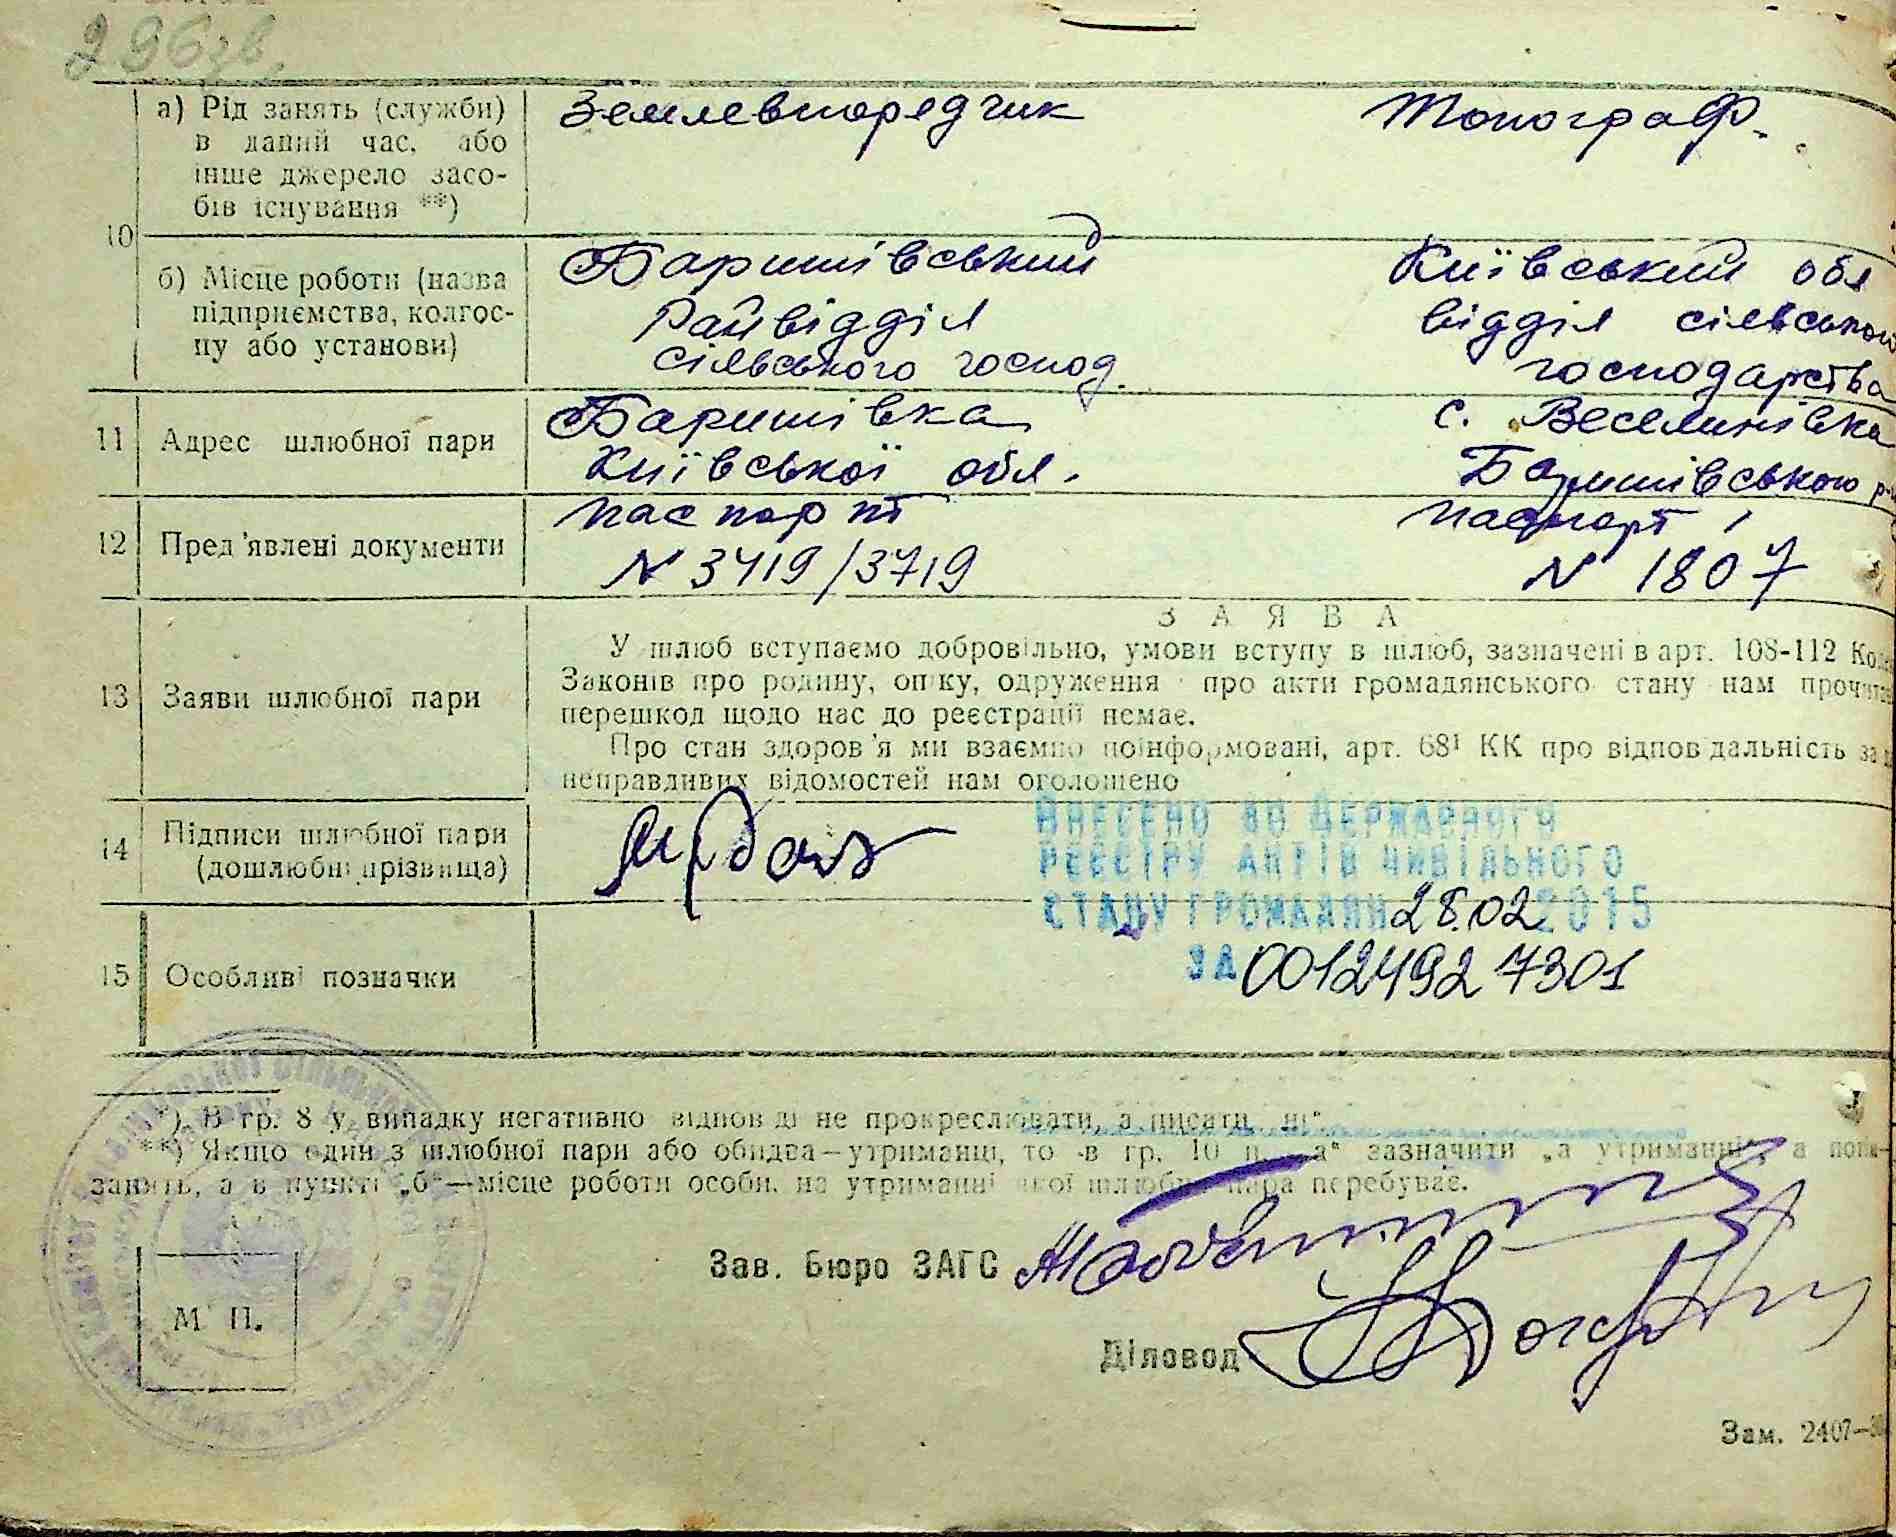 296зв.
а) Рід занять (служби) Землевпорядчик Топограф.
в даний час, або
інше джерело засо-
бів існування **)
10
б) Місце роботи (назва Баришівський Київський обл
підприємства, колгос- Райвідділ відділ сільського
пу або установи) сільського господ. господарства
11 Адрес шлюбної пари Баришівка с. Веселинівка
Київської обл. Баришівського р-н
12 Пред'явлені документи паспорт паспорт
N 3419/3719 N 1807
ЗАЯВА
У шлюб вступаємо добровільно, умови вступу в шлюб, зазначені в арт. 108-112
13 Заяви шлюбної пари Законів про родину, опіку, одруження про акти громадянського стану нам
перешкод щодо нас до реєстрації немає.
Про стан здоров'я ми взаємно поінформовані, арт. 68¹ КК про відповідальність за
неправдивих відомостей нам оголошено
14 Підписи шлюбної пари
(дошлюбні прізвища)
Внесено до Державного
реєстру актів цивільного
стану громадян 28.02 2015
за 00124927301
15 Особливі позначки
*) В гр. 8 у випадку негативної відповіді не прокреслювати, а писати „ні“
**) Якщо один з шлюбної пари або обидва—утриманці, то в гр. 10 п. „а“ зазначити „а утриманні“, а
занять, а в пункті „б“—місце роботи особи, на утриманні якої шлюбна пара перебуває.
Зав. Бюро ЗАГС
М. П.
Діловод
Зам. 2407—